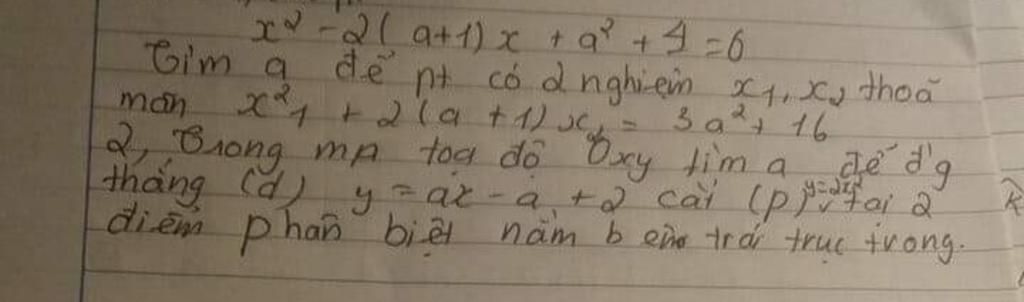 x² - 2(a+1)x + a² + 4 = 0
Tìm a để pt có 2 nghiệm x₁, x₂ thoả
mãn x²₁ + 2(a+1)x₂ = 3a² + 16
2, Trong mp toạ độ Oxy tìm a để đ'g
thẳng (d) y = ax - a + 2 cắt (P) y=2x² tại 2
điểm phân biệt nằm bên trái trục trong.